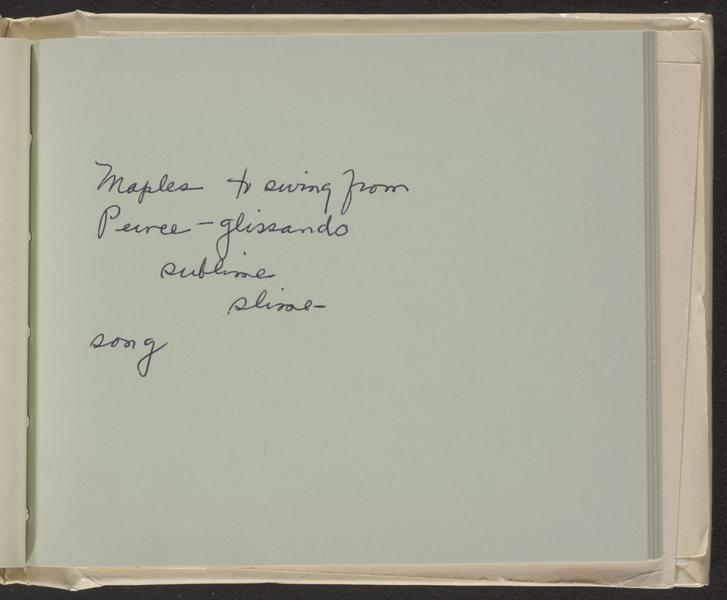 Maples to swing from
Peirce-glissando
sublime
slime-
song